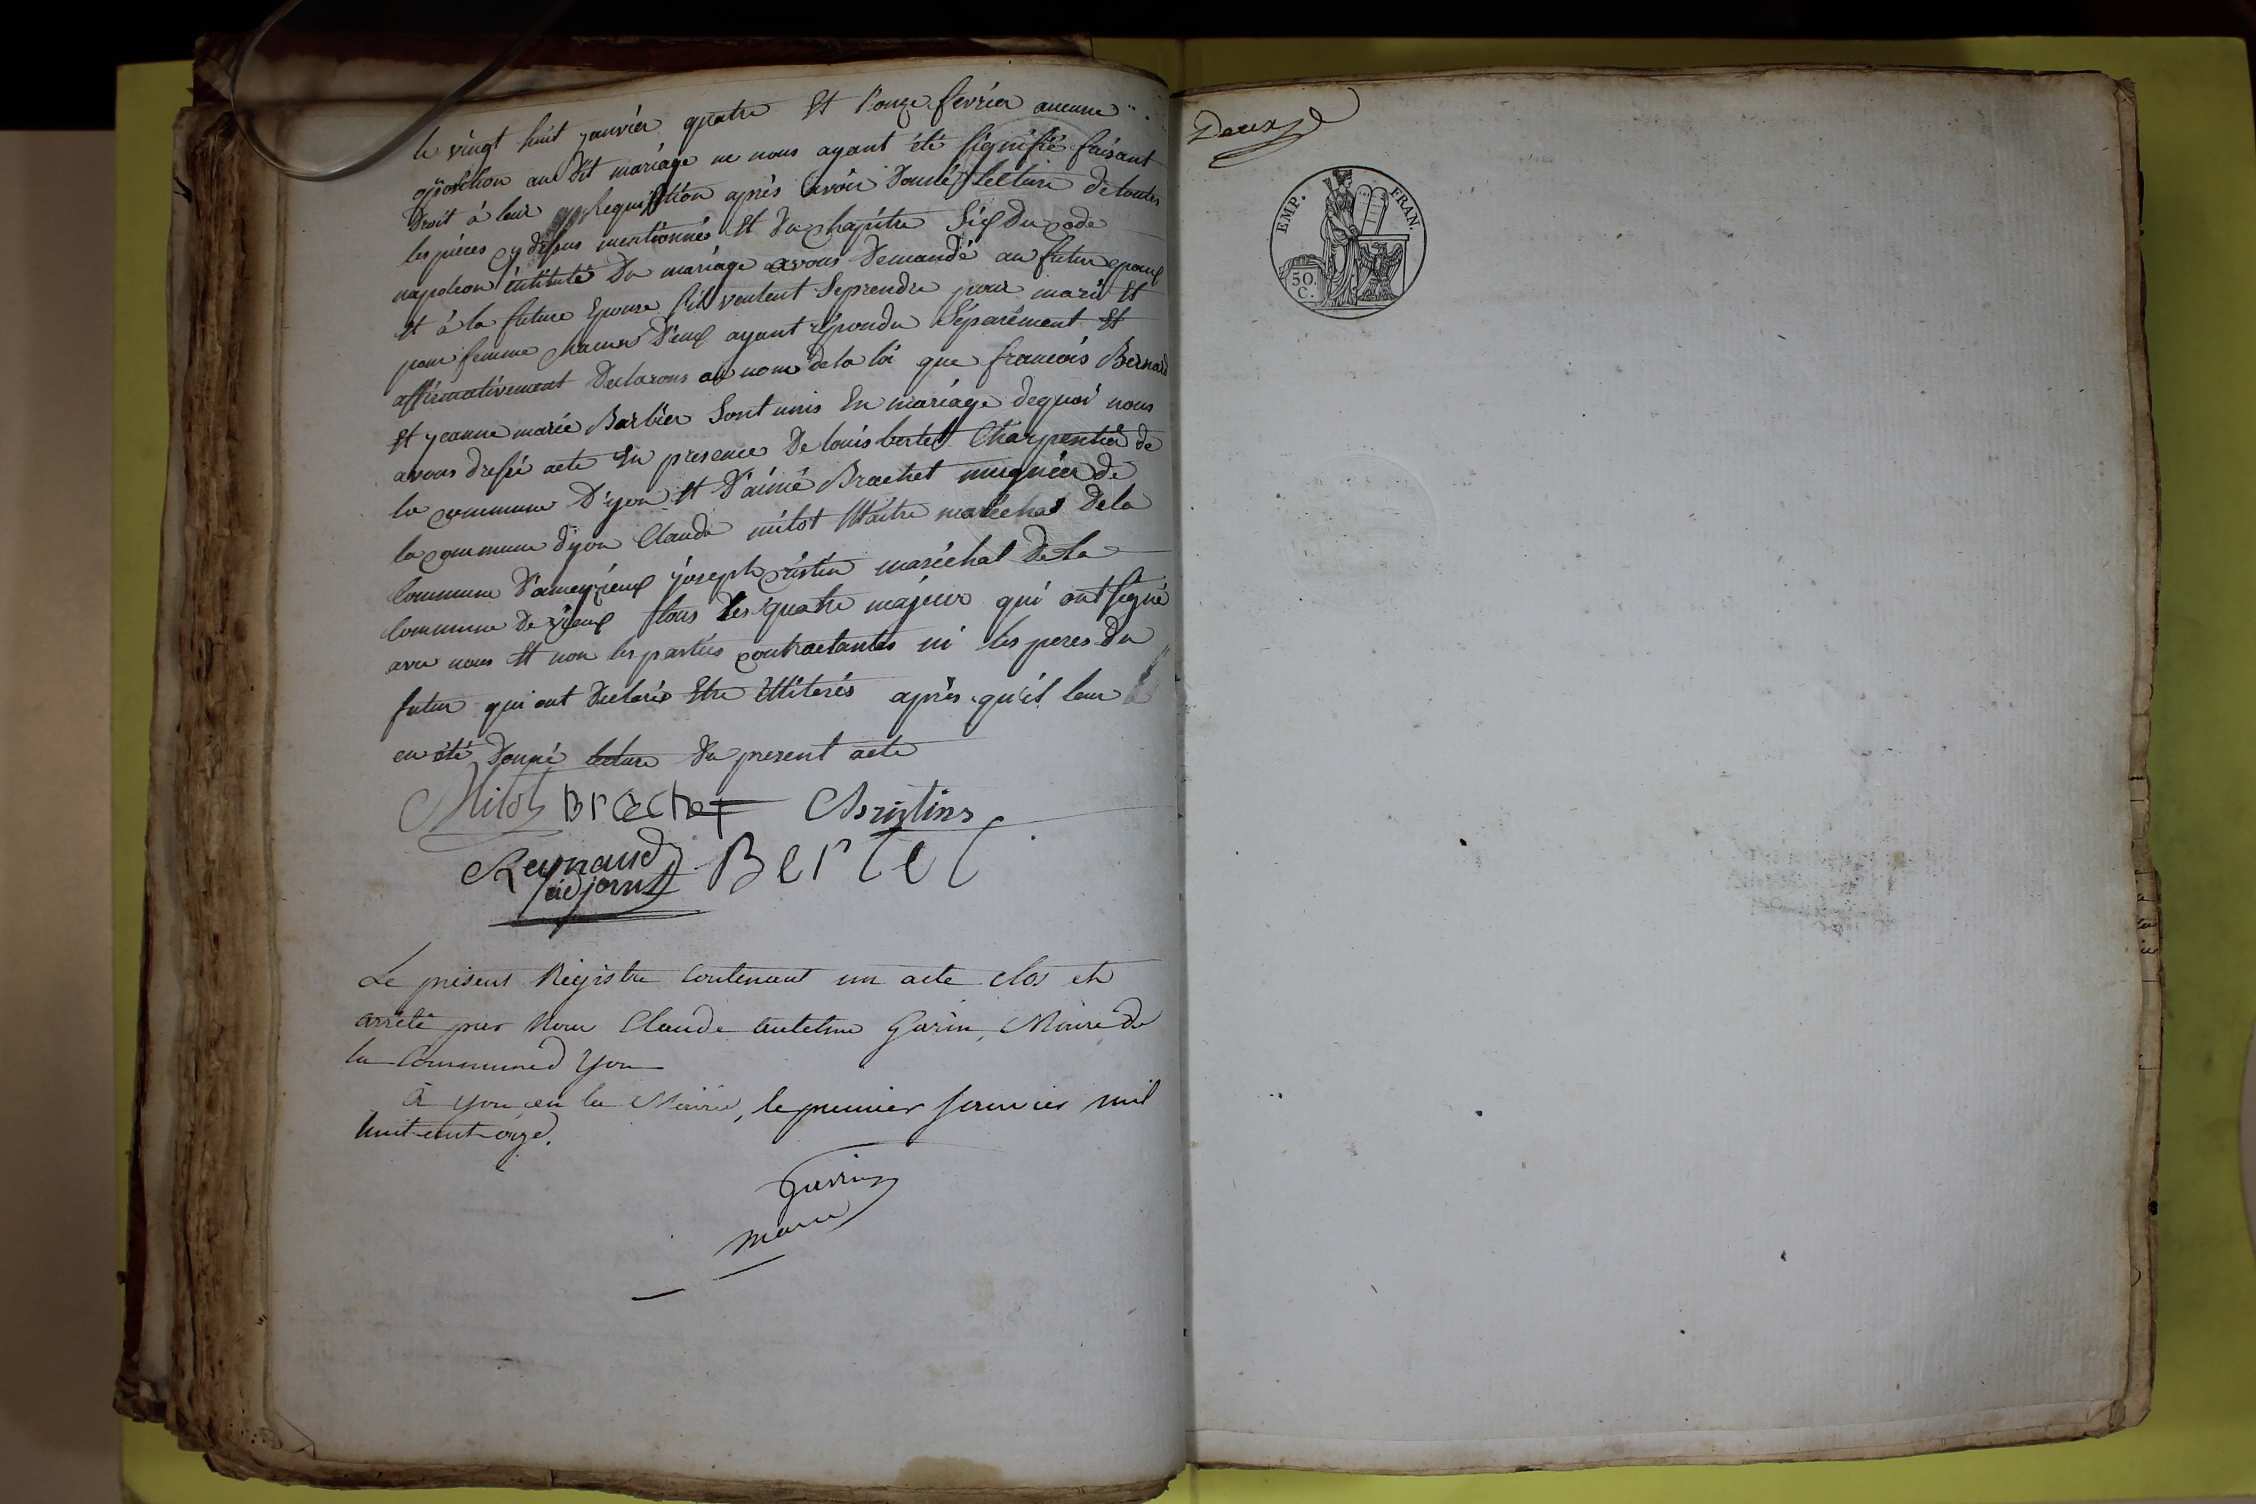 le vingt huit janvier quatre Et l'onze fevrier aucune
opposition au dit mariage ne nous ayant été signifié faisant
Droit à leur Requisition après avoir Donné lecture de toutes
les pièces cy dessus mentionnés Et Du chapitre Six Du code
napoleon intitulé Du mariage avons Demandé au futur epoux
Et à la future Epouse s'il veulent Se prendre pour mari Et
pour femme chacuns D'eux ayant repondu Séparément Et
affirmativement Declarons au nom de la loi que francois Bernard
Et jeanne marie Barbier Sont unis En mariage de quoi nous
avons dressé acte En presence De louis bertet Charpentier de
la commune D'yon Et D'aimé Brachet mugnier de
la commune d'yon Claude milot Maitre maréchal De la
Commune D'ameyzieux joseph cristin maréchal De la
Commune De vieux tous les quatre majeur qui ont signé
avec nous Et non les parties contractantes ni les peres Du
futur qui ont Declaré Etre illiterés après qu'il leur
en été Donné lecture Du present acte
Milot Brachet Christins
Reynaud Bertet
adjoint
Le présent Régistre Contenant un acte clos et
arrêté par Nous Claude Antelme Garin, Maire de
la Commune d Yon
à Yon en la Mairie, le premier Janvier mil
huit cent onze.
Garin
maire
Deux
EMP. FRAN.
50.
C.